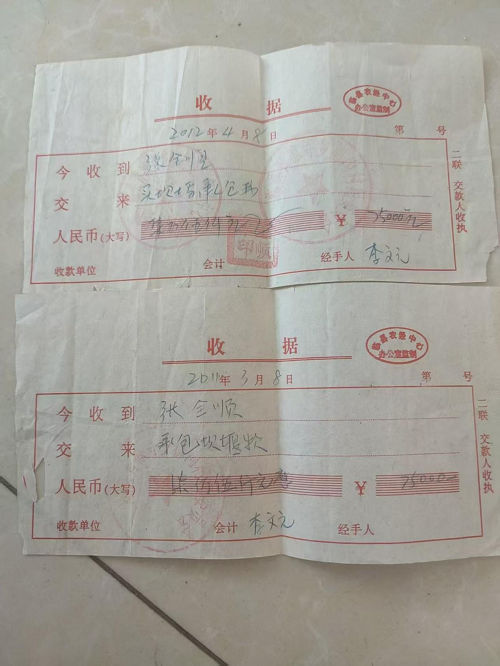 收 据
临县农经中心
办公室监制
2012年4月8日 第 号
今收到
交 来
人民币(大写) ¥ 75000元
收款单位 会计 经手人 李文元
二联 交款人收执
收 据
临县农经中心
办公室监制
2011年3月8日 第 号
今收到 张金顺
交 来 承包坝堰款
人民币(大写) 柒万五仟元整 ¥ 75000
收款单位 会计 李文元 经手人
二联 交款人收执